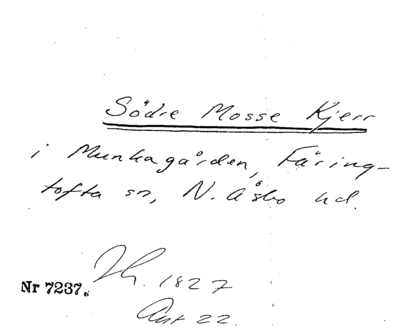 Södre Mosse Kjerr
i Munkagården, Färing-
tofta sn, N. Åsbo hd.
Th. 1827
Nr 7237.
Ant 22.